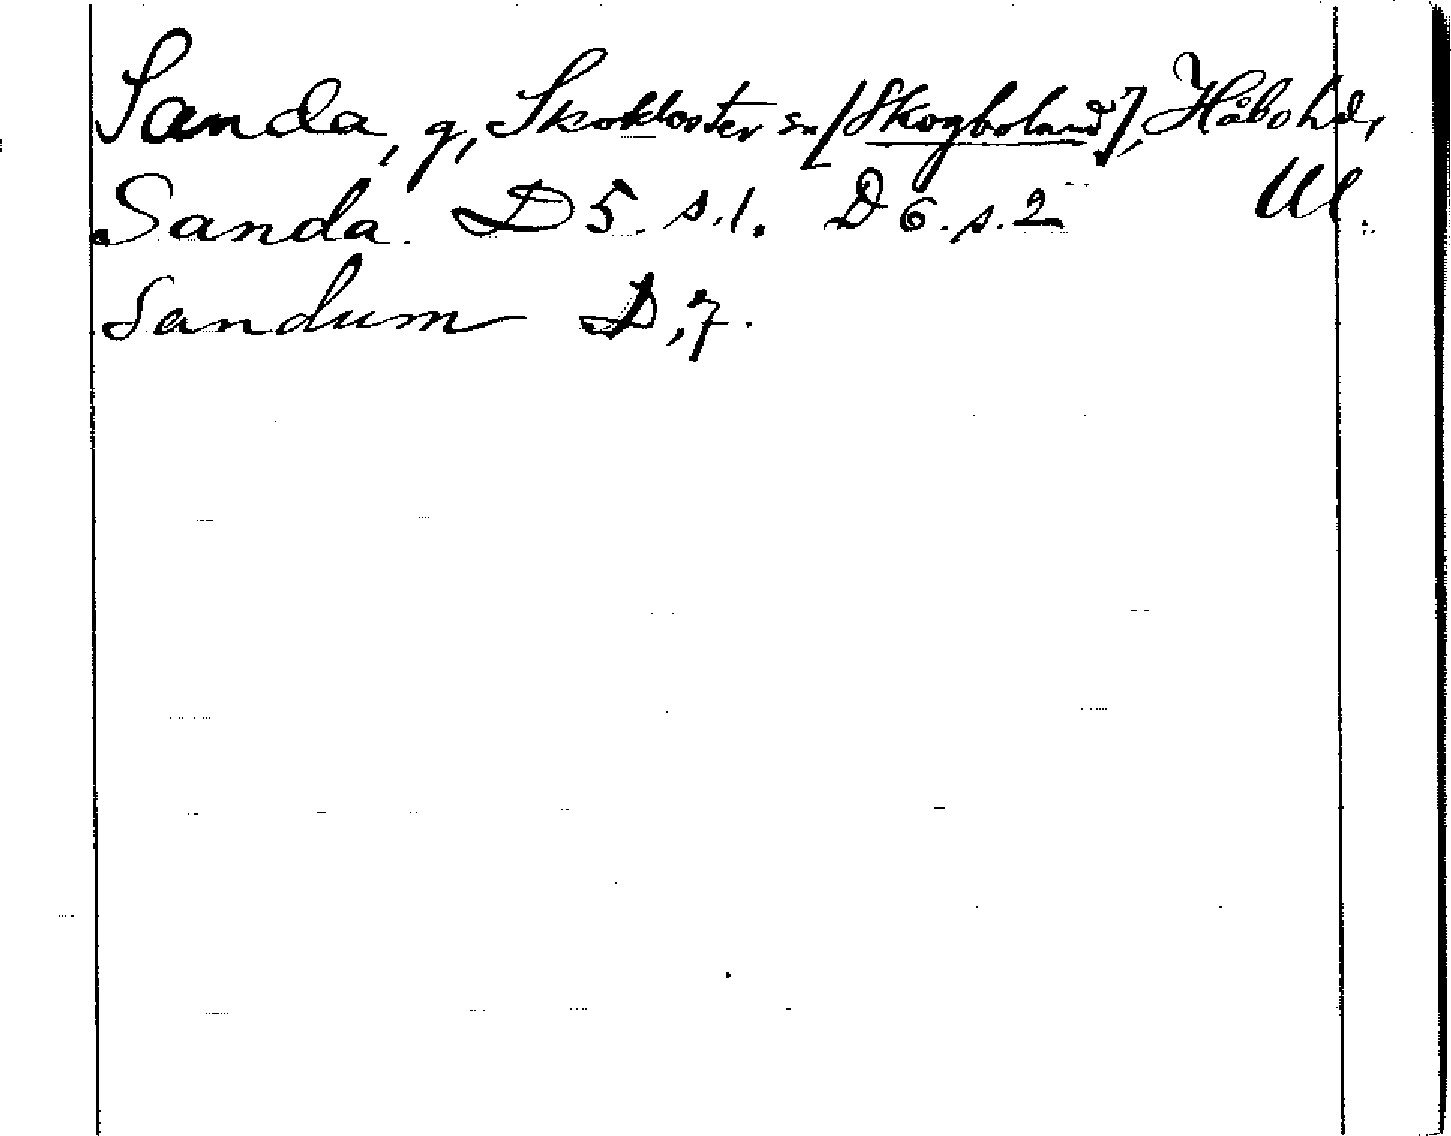 Sanda, g, Skokloster sn [Skogboland], Håbo hd,
Sanda. D 5. s. 1. D 6. s. 2 Ul.
Sandum D, 7.